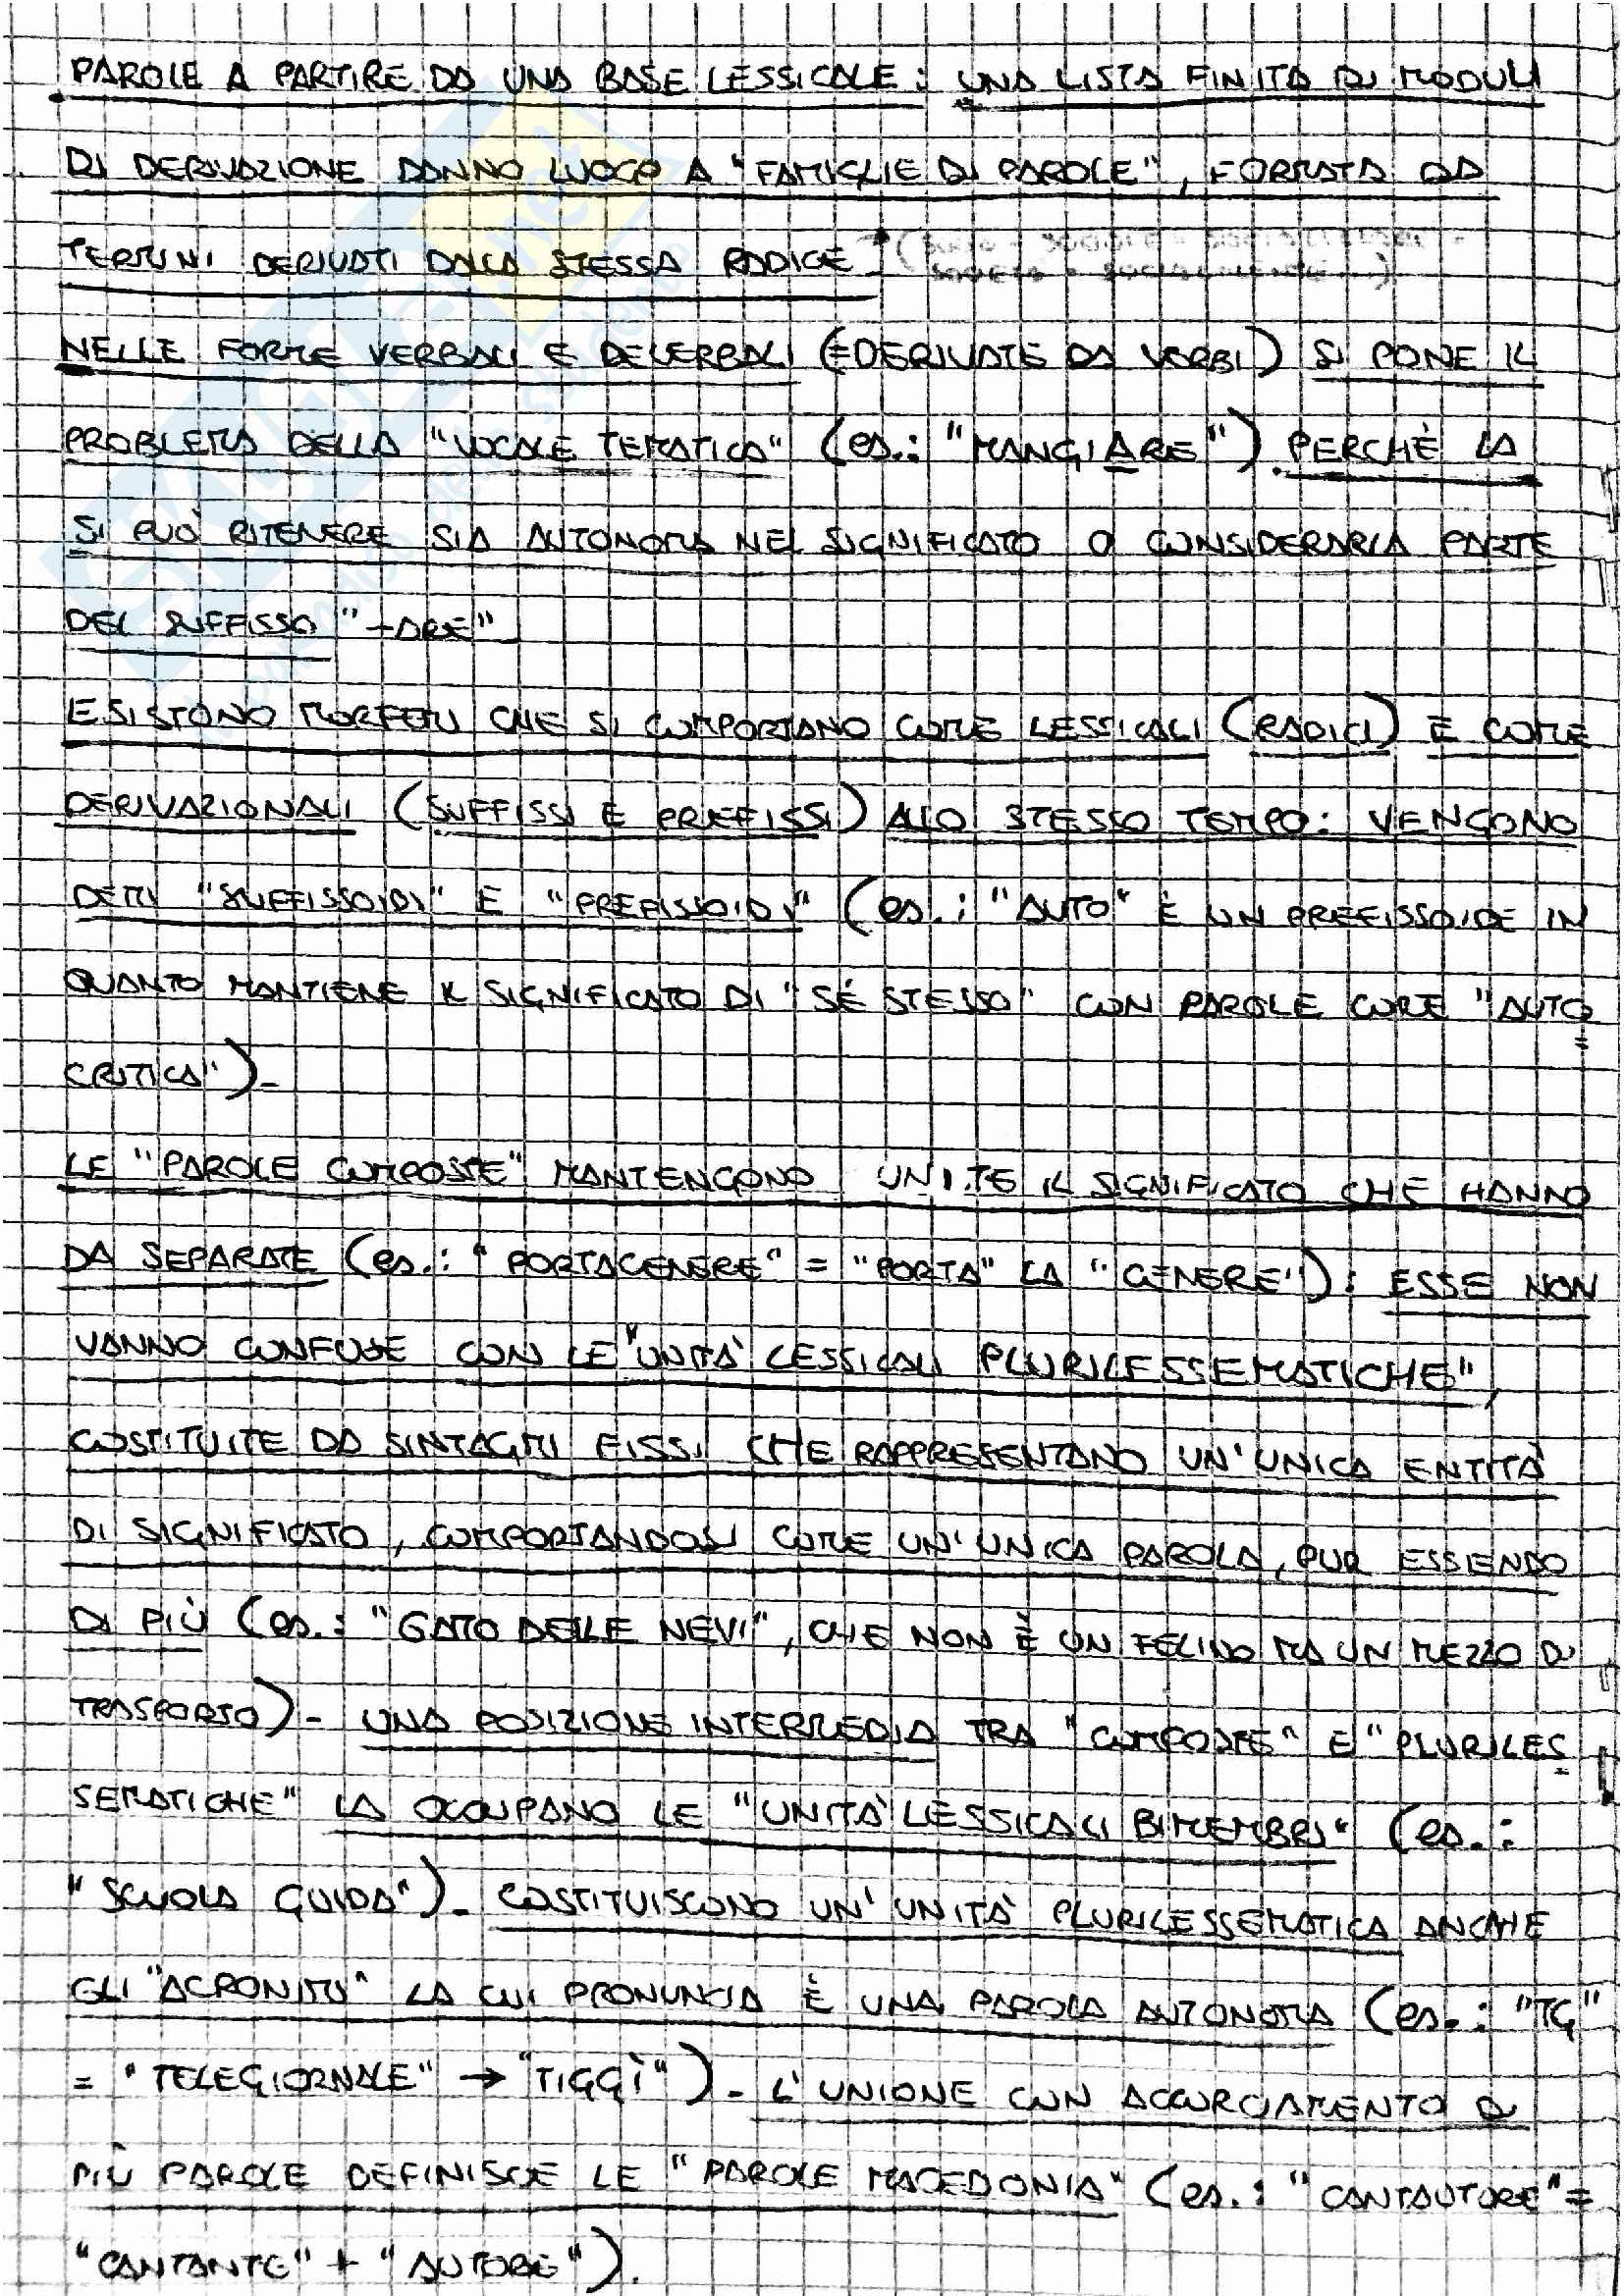 PAROLE A PARTIRE DA UNA BASE LESSICALE: UNA LISTA FINITA DI MODULI
DI DERIVAZIONE DANNO LUOGO A "FAMIGLIE DI PAROLE", FORMATA DA
TERMINI DERIVATI DALLA STESSA RADICE
NELLE FORME VERBALI E DEVERBALI (=DERIVATE DA VERBI) SI PONE IL
PROBLEMA DELLA "VOCALE TEMATICA" (es.: "MANGIARE") PERCHÈ LA
SI PUÒ RITENERE SIA AUTONOMA NEL SIGNIFICATO O CONSIDERARLA PARTE
DEL SUFFISSO "-ARE"
ESISTONO MORFEMI CHE SI COMPORTANO COME LESSICALI (RADICI) E COME
DERIVAZIONALI (SUFFISSI E PREFISSI) ALLO STESSO TEMPO: VENGONO
DETTI "SUFFISSOIDI" E "PREFISSOIDI" (es.: "AUTO" È UN PREFISSOIDE IN
QUANTO MANTIENE IL SIGNIFICATO DI "SÉ STESSO" CON PAROLE COME "AUTO=
CRITICA")-
LE "PAROLE COMPOSTE" MANTENGONO UNITE IL SIGNIFICATO CHE HANNO
DA SEPARATE (es.: "PORTACENERE" = "PORTA" LA "CENERE"): ESSE NON
VANNO CONFUSE CON LE "UNITÀ LESSICALI PLURILESSEMATICHE",
COSTITUITE DA SINTAGMI FISSI CHE RAPPRESENTANO UN'UNICA ENTITÀ
DI SIGNIFICATO, COMPORTANDOSI COME UN'UNICA PAROLA, PUR ESSENDO
DI PIÙ (es.: "GATO DELLE NEVI", CHE NON È UN FELINO MA UN MEZZO DI
TRASPORTO)- UNA POSIZIONE INTERMEDIA TRA "COMPOSTE" E "PLURILES=
SEMATICHE" LA OCCUPANO LE "UNITÀ LESSICALI BIMEMBRI" (es.:
"SCUOLA GUIDA")- COSTITUISCONO UN'UNITÀ PLURILESSEMATICA ANCHE
GLI "ACRONIMI" LA CUI PRONUNCIA È UNA PAROLA AUTONOMA (es.: "TG"
= "TELEGIORNALE" → "TIGGÌ")- L'UNIONE CON ACCORCIAMENTO DI
PIÙ PAROLE DEFINISCE LE "PAROLE MACEDONIA" (es.: "CANTAUTORE" =
"CANTANTE" + "AUTORE").